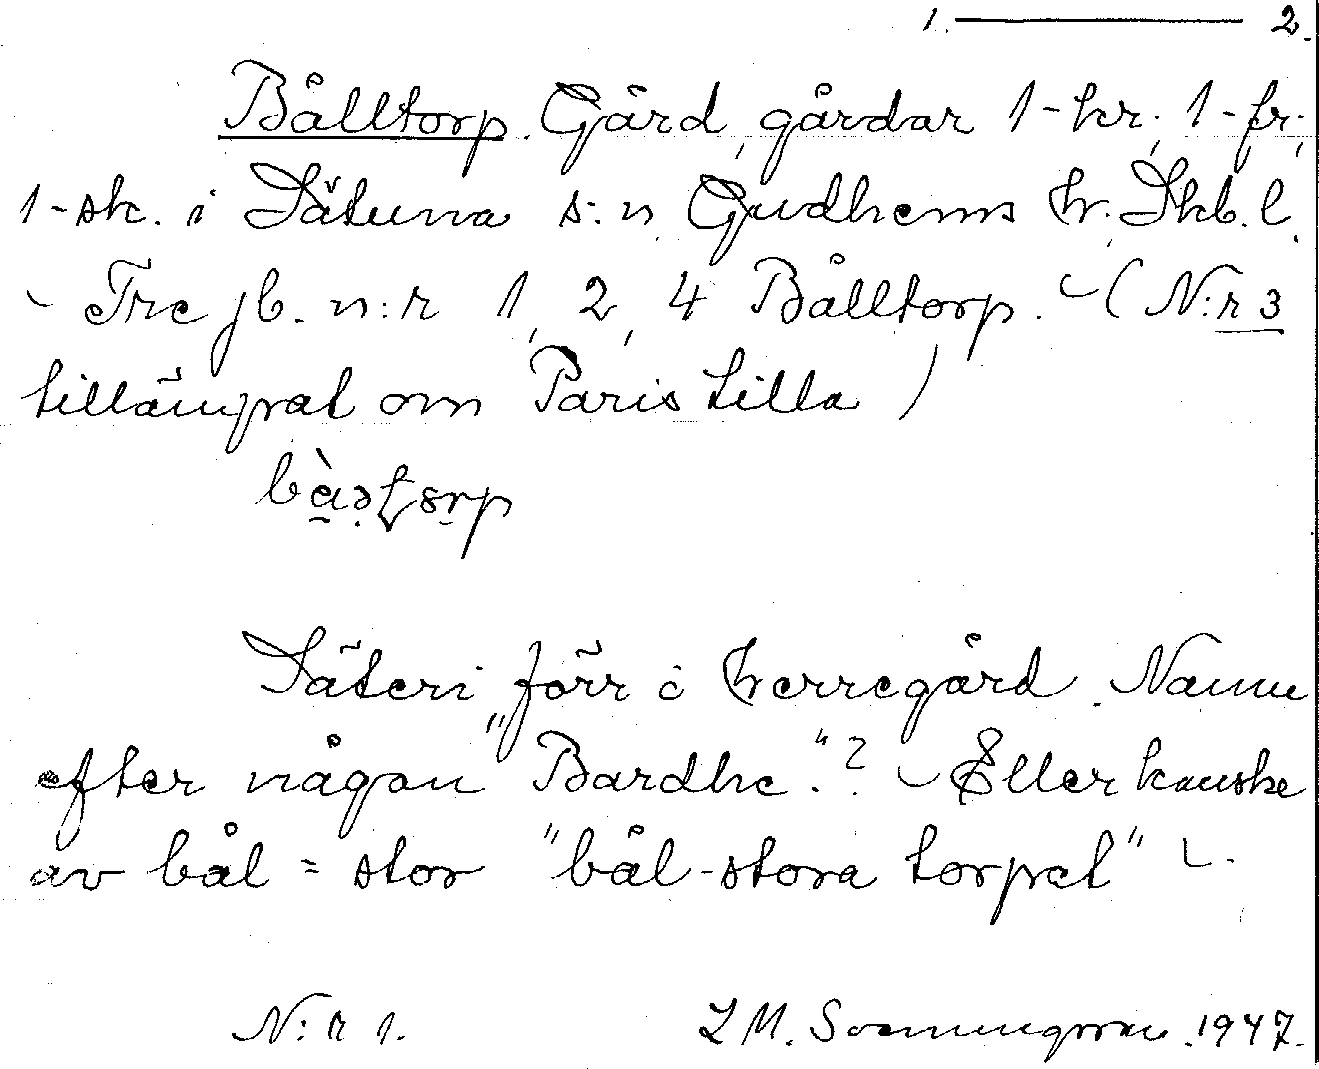 1. ——— 2.
Bålltorp. Gård, gårdar 1-kr., 1-fr.,
1-sk. i Sätuna s:n, Gudhems hr. Skb. l.
- Tre jb. n:r 1, 2, 4 Bålltorp. - (N:r 3
tillämpat om Paris lilla)
Säteri, förr i herregård. Namn
efter någon "Bardhe."? - Eller kanske
av bål = stor "bål-stora torpet" -.
N:r 1. 1947.